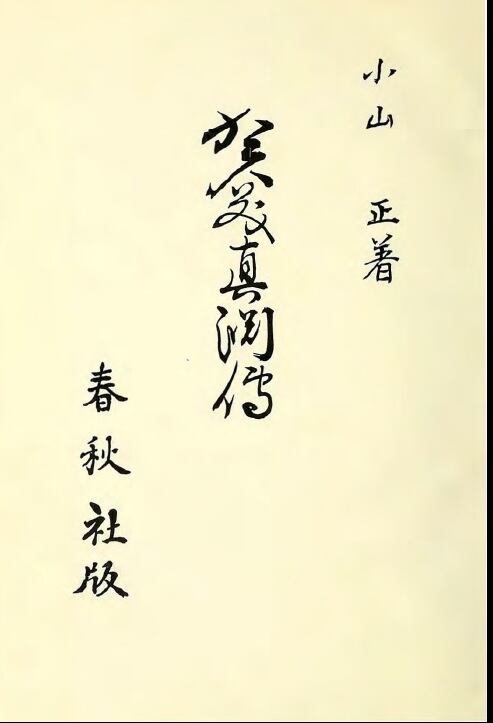 小山 正著
賀茂真渕傳
春秋社版